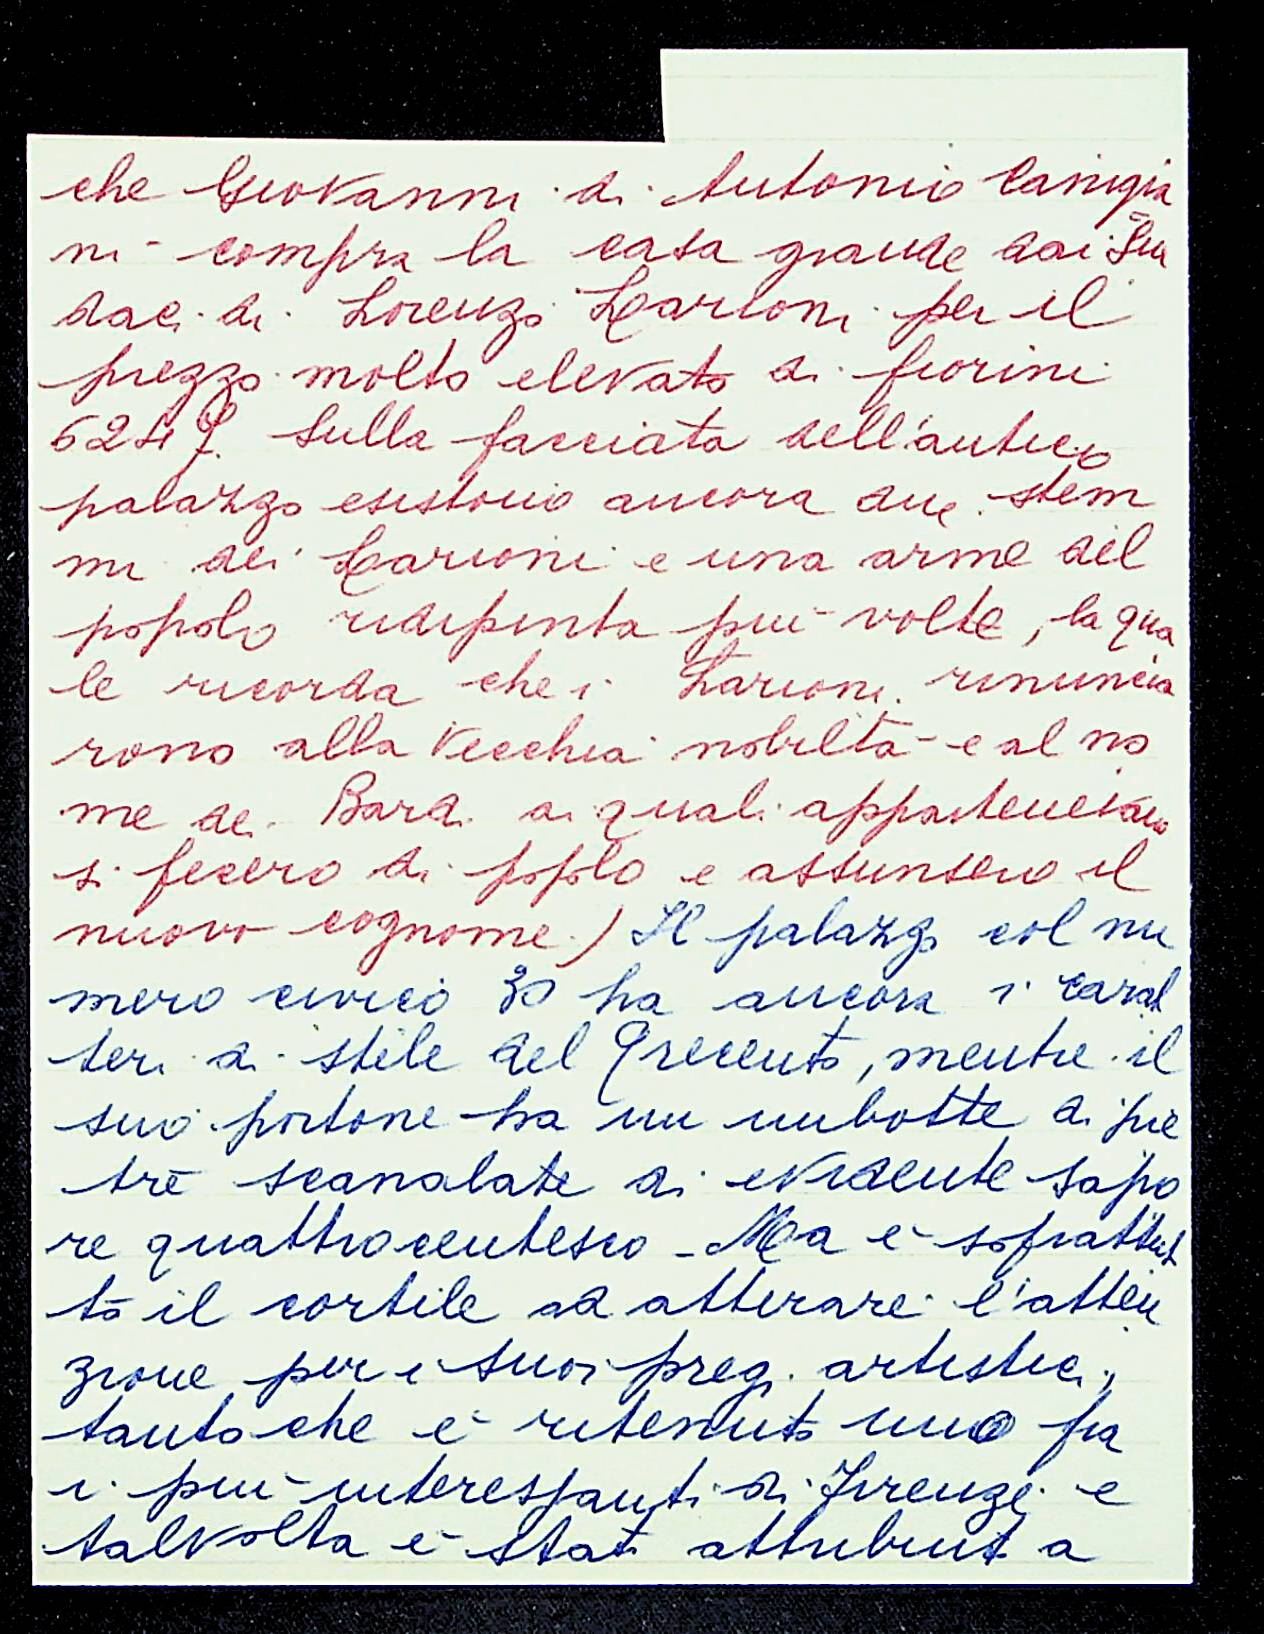 che Giovanni di Antonio Canigia
ni compra la casa grande dai Sin
daci di Lorenzo Larioni per il
prezzo molto elevato di fiorini
6247. Sulla facciata dell'antico
palazzo esistono ancora due stem
mi dei Larioni e una arme del
popolo ridipinta più volte, la qua
le ricorda che i Larioni rinuncia
rono alla vecchia nobiltà e al no
me dei Bardi ai quali appartenevano
si fecero di popolo e assunsero il
nuovo cognome.) Il palazzo col nu
mero civico 30 ha ancora i carat
teri di stile del Trecento, mentre il
suo portone ha un imbotte di pie
tre scanalate di evidente sapo
re quattrocentesco - Ma è soprattut
to il cortile ad attirare l'atten
zione per i suoi pregi artistici,
tanto che è ritenuto uno fra
i più interessanti di Firenze e
talvolta è stato attribuito a